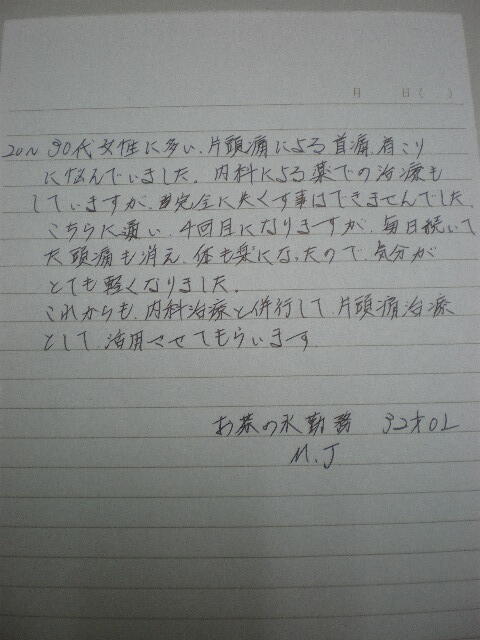 月 日( )
20〜30代女性に多い、片頭痛による首痛、肩こり
に悩んでいました。内科による薬での治療も
していますが、完全に失くす事はできませんでした。
こちらに通い、4回目になりますが、毎日続いて
た頭痛も消え、体も楽になったので、気分が
とても軽くなりました。
これからも、内科治療と併行して、片頭痛治療
として、活用させてもらいます
お茶の水勤務 32才OL
M.J